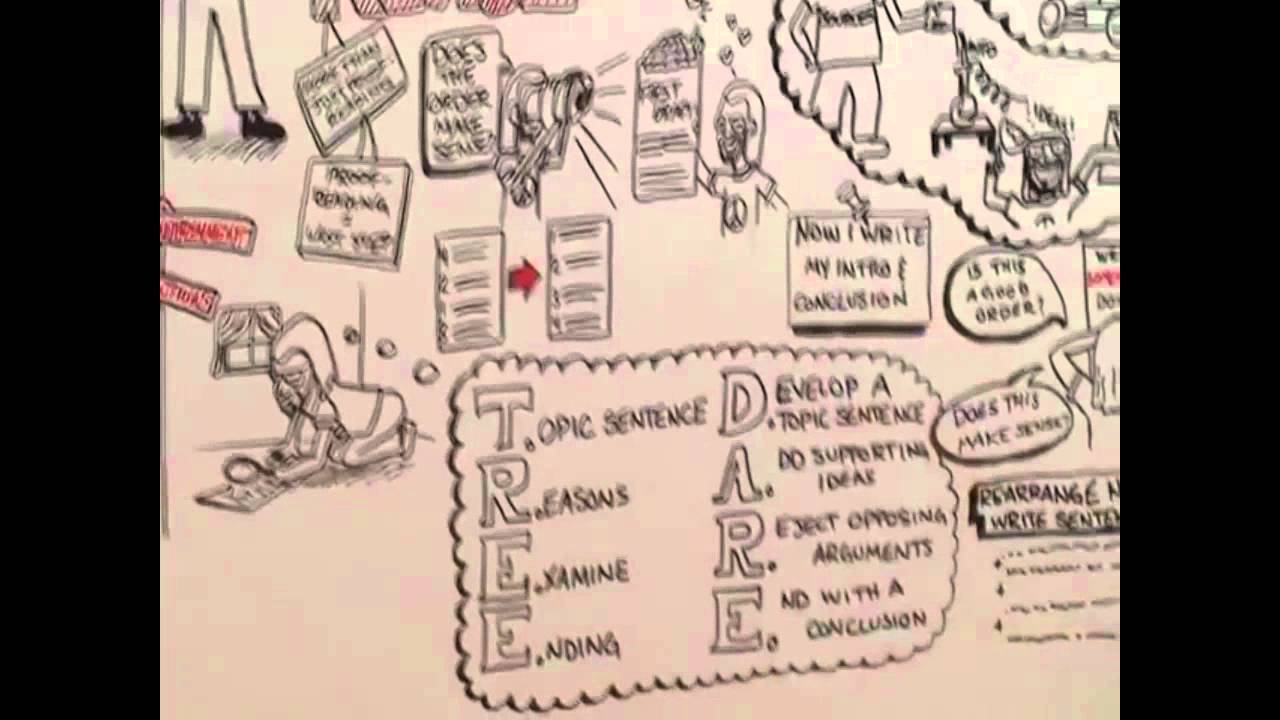 MORE THAN
JUST PROOF-
READING
DOES
THE
ORDER
MAKE
SENSE?
FIRST
DRAFT
INFO
IDEA!
PROOF-
READING
&
1
2
3
4
NOW I WRITE
MY INTRO &
CONCLUSION
IS THIS
A GOOD
ORDER?
T.OPIC SENTENCE
R.EASONS
E.XAMINE
E.NDING
D.EVELOP A
TOPIC SENTENCE
A. DD SUPPORTING
IDEAS
R.EJECT OPPOSING
ARGUMENTS
E.ND WITH A
CONCLUSION
DOES THIS
MAKE SENSE?
REARRANGE
WRITE